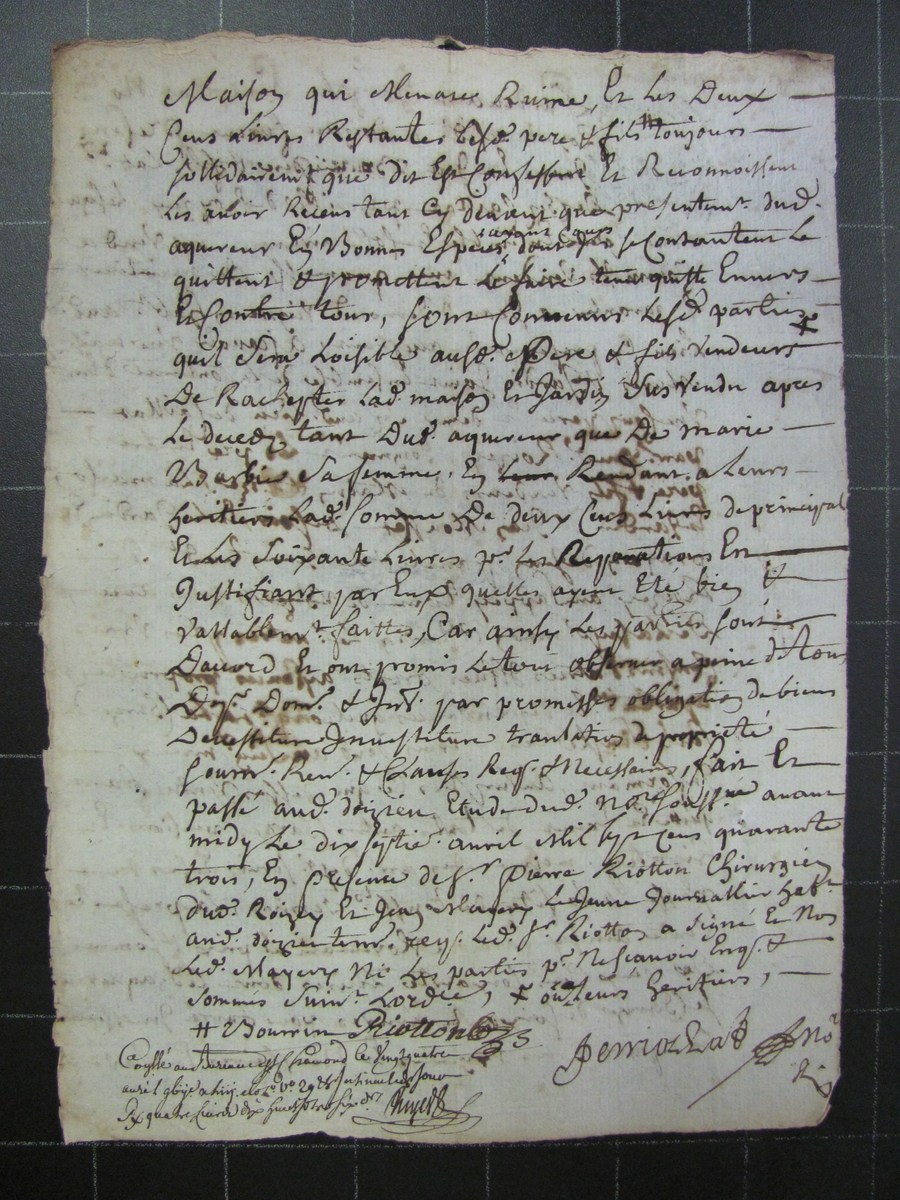 Maison qui Menace Ruine, Et Les Deux
Cens Livres Restantes Lesd. pere & fils # toujours
sollidairemt. que dit Est Confessent Et Reconnoissent
Les avoir Receus tant Cy devant que presentemt. dud.
aquereur En Bonnes Espèces dont se Contantent Le
quittent & promettent Le faire tenir quitte Envers
Et Contre tous, sont Convenus Lesd. parties
quil Sera Loisible ausd. Pere & fils vendeurs +
De Rachepter Lad. maison Et Jardin Sus vendu apres
Le decedz tant Dud. aquereur que De marie
Barbie Sa femme, En Rendant a Leurs
heritiers Lad. Somme De deux Cens Livres de principal
Et Les Soixante Livres pr. Les Reparations En
Justifiant par Eux quelles ayent Eté bien &
Vallablemt. faittes, Car ainsy Les parties sont
Daccord Et ont promis Le tout observer a peine de tous
Dep. Dom. & Int. par promesses obligation de biens
Devestiture Investiture translation de propriété
soumn. Ren. & Clauses Req. & Necessaires, fait Et
passé aud. doizieu Etude dud. Nore. souss.ne avant
midy Le dix septie. avril Mil sept Cens quarante
trois, En presence de Sr. Pierre Riotton Chirurgien
dud. Et Jean Mayery Le Jeune Journallier habt.
aud. doizieu Led. Sr. Riotton a Signé Et Non
Led. Mayery Ni Les parties pr. Ne Scavoir Enq. &
Sommés Suivt. Lordce, + ou Leurs heritiers,
# Bourrin Riotton
au Bureau de St Chamond Le Vingt quatre
avril
quatre Livres dix huit sols six drs